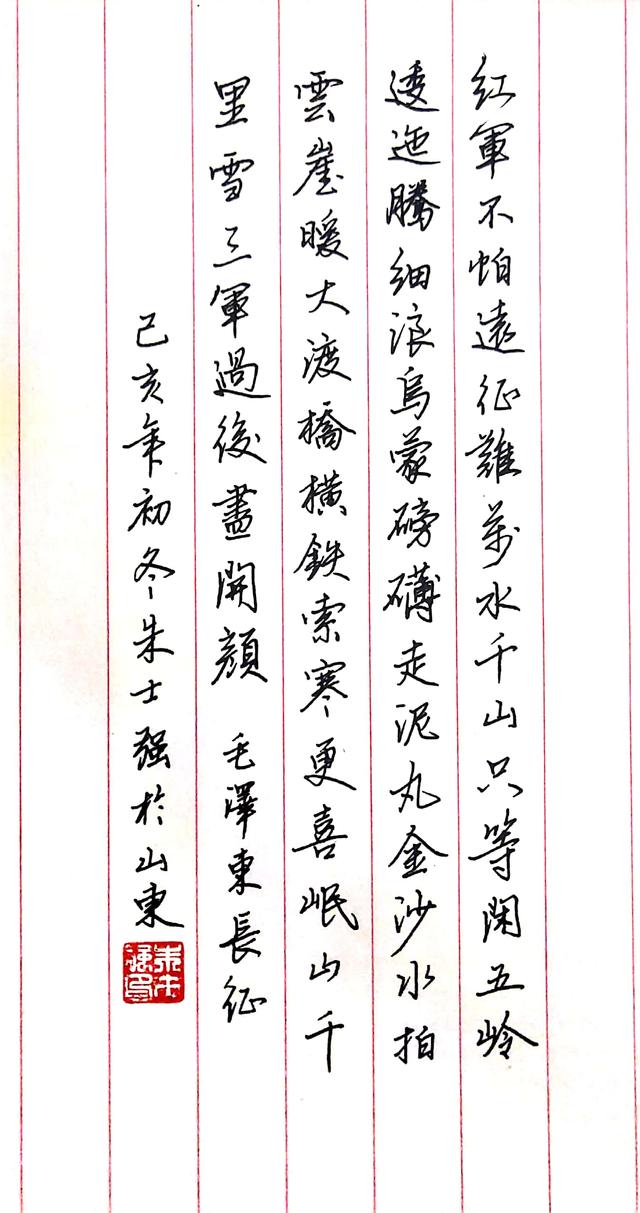 红軍不怕遠征難萬水千山只等閑五岭
逶迤騰細浪烏蒙磅礴走泥丸金沙水拍
雲崖暖大渡橋横鉄索寒更喜岷山千
里雪三軍過後盡開顔 毛澤東長征
己亥年初冬朱士强於山東